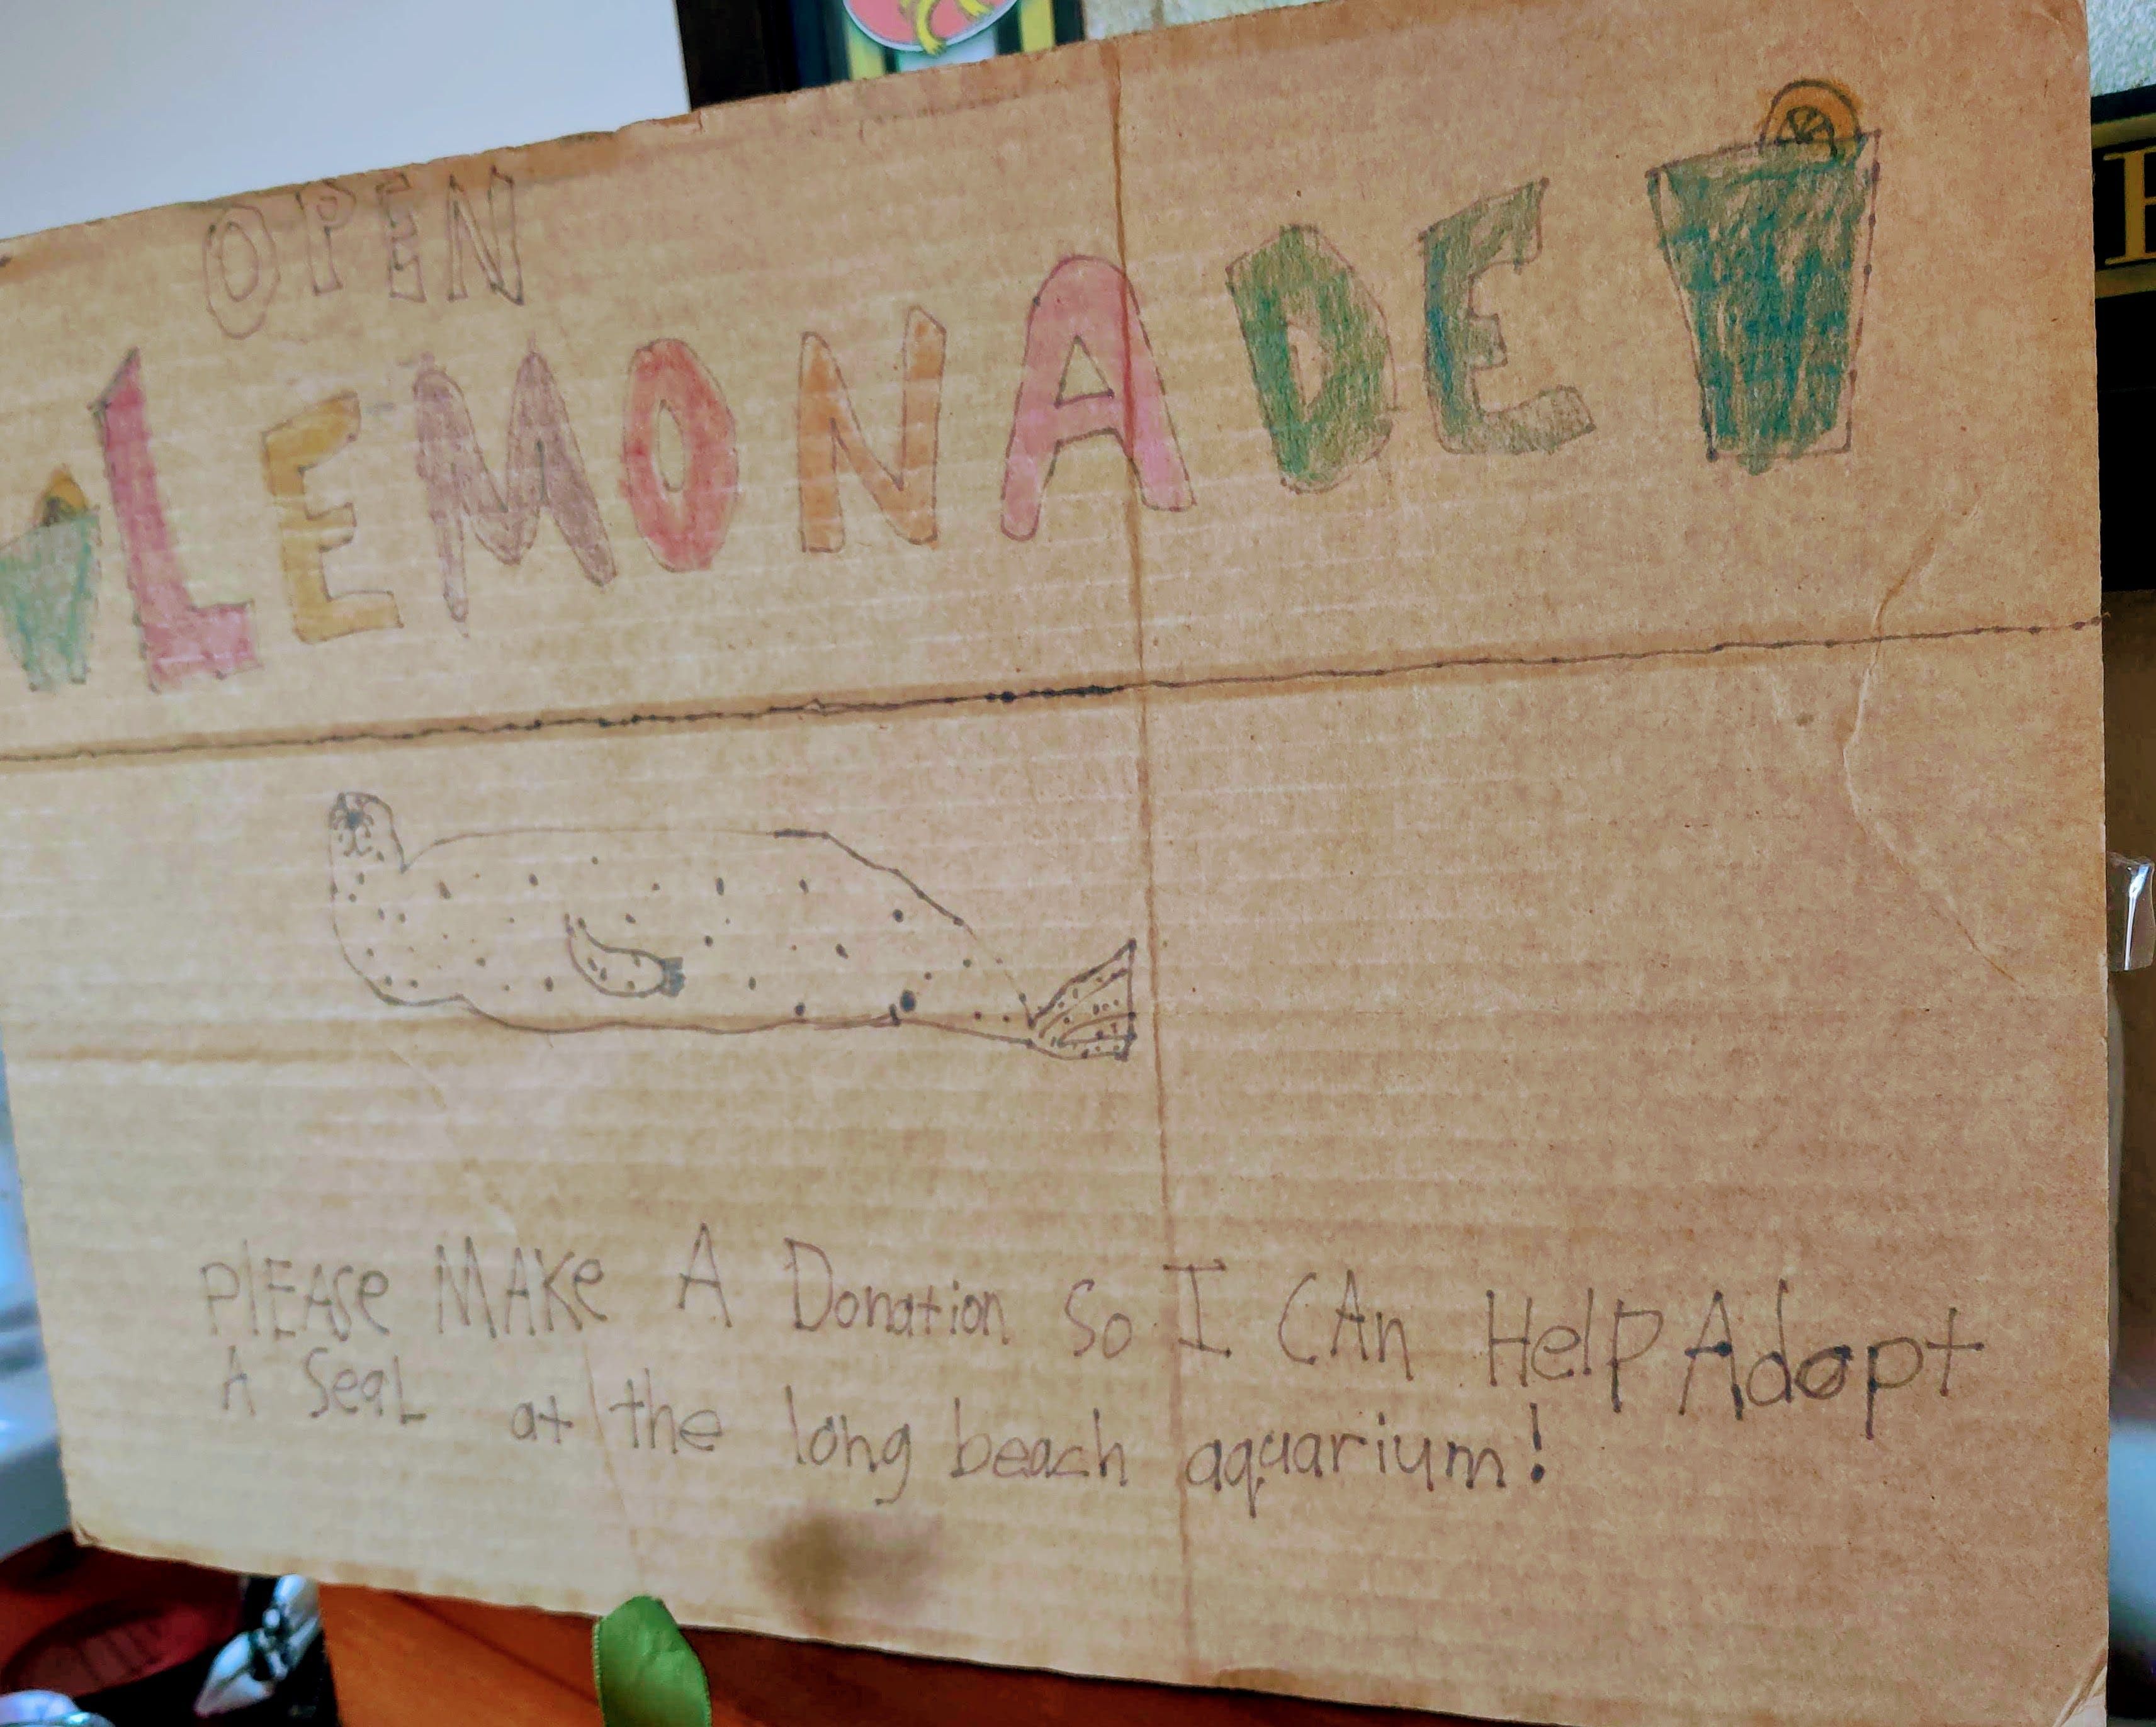 OPEN
LEMONADE
PlEASe MAKe A Donation So I CAn HelP Adopt
A SeaL at the long beach aquarium!